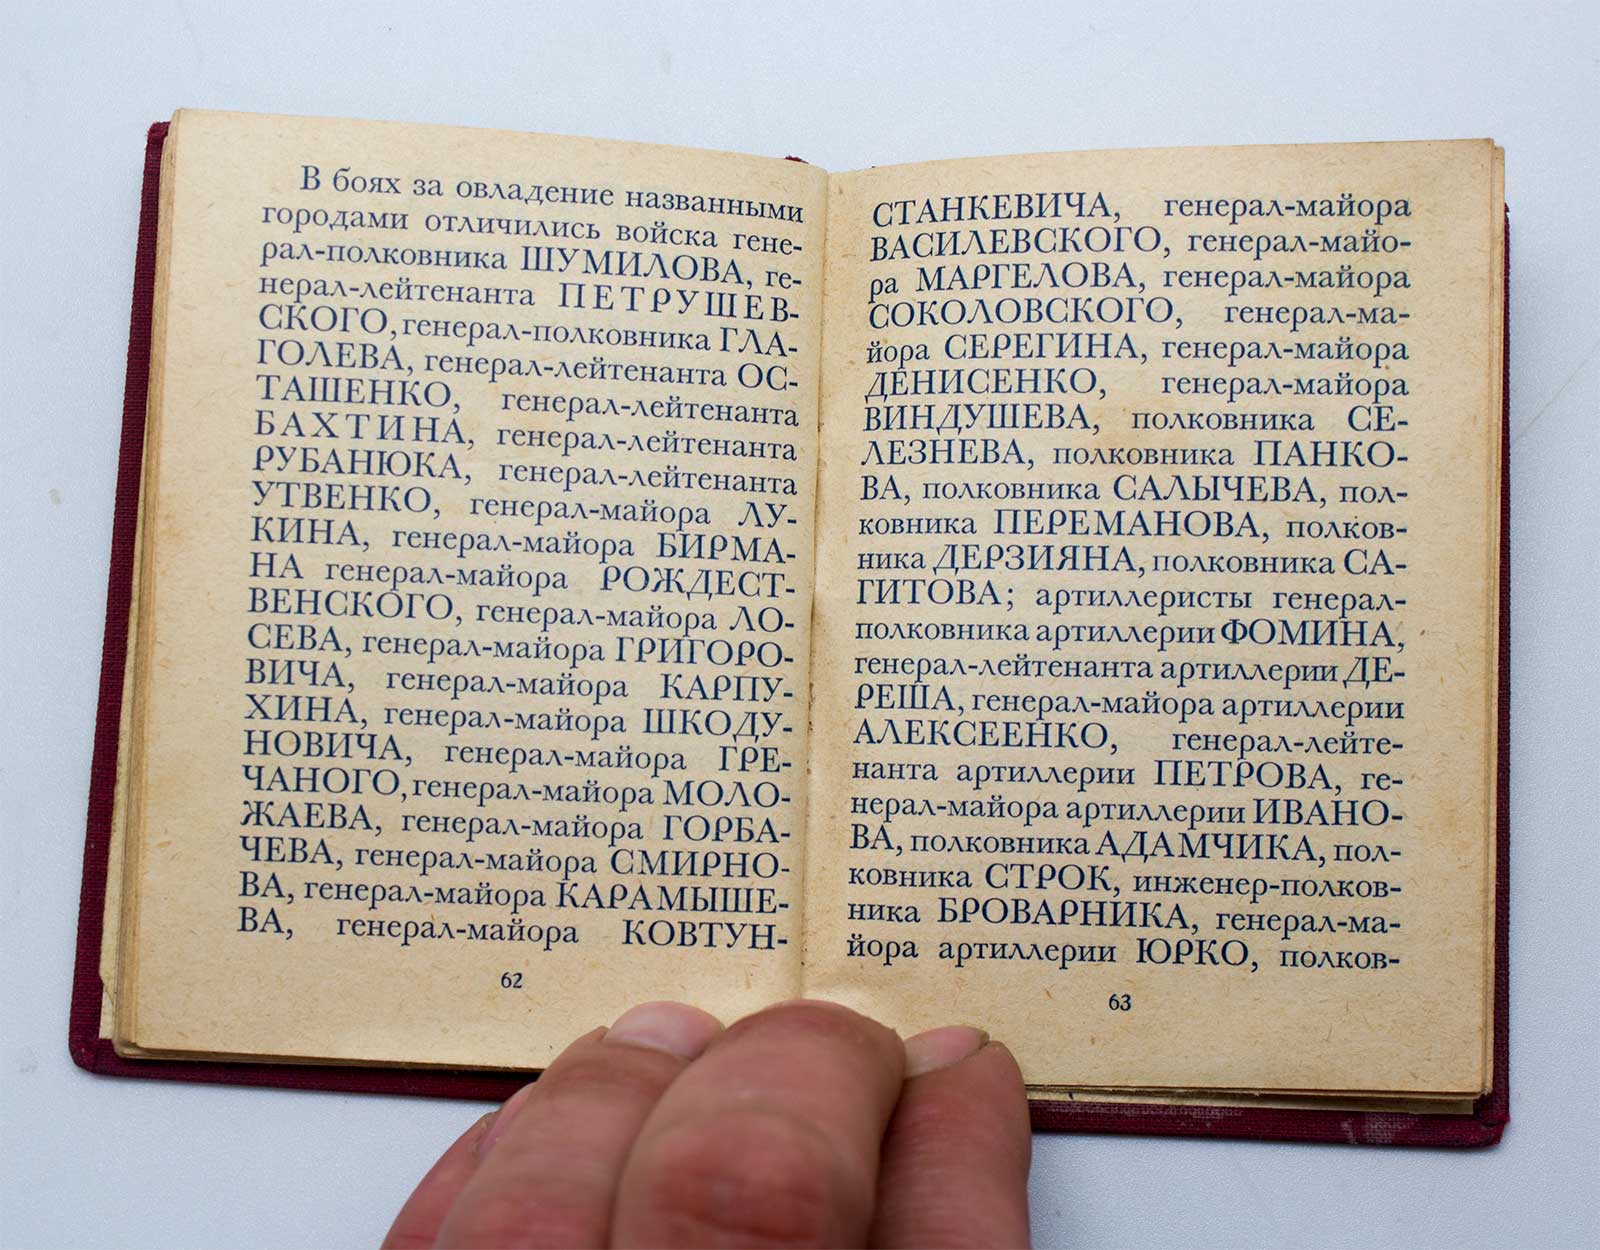 В боях за овладение названными
городами отличились войска гене-
рал-полковника ШУМИЛОВА, ге-
нерал-лейтенанта ПЕТРУШЕВ-
СКОГО, генерал-полковника ГЛА-
ГОЛЕВА, генерал-лейтенанта ОС-
ТАШЕНКО, генерал-лейтенанта
БАХТИНА, генерал-лейтенанта
РУБАНЮКА, генерал-лейтенанта
УТВЕНКО, генерал-майора ЛУ-
КИНА, генерал-майора БИРМА-
НА генерал-майора РОЖДЕСТ-
ВЕНСКОГО, генерал-майора ЛО-
СЕВА, генерал-майора ГРИГОРО-
ВИЧА, генерал-майора КАРПУ-
ХИНА, генерал-майора ШКОДУ-
НОВИЧА, генерал-майора ГРЕ-
ЧАНОГО, генерал-майора МОЛО-
ЖАЕВА, генерал-майора ГОРБА-
ЧЕВА, генерал-майора СМИРНО-
ВА, генерал-майора КАРАМЫШЕ-
ВА, генерал-майора КОВТУН-
62
СТАНКЕВИЧА, генерал-майора
ВАСИЛЕВСКОГО, генерал-майо-
ра МАРГЕЛОВА, генерал-майора
СОКОЛОВСКОГО, генерал-ма-
йора СЕРЕГИНА, генерал-майора
ДЕНИСЕНКО, генерал-майора
ВИНДУШЕВА, полковника СЕ-
ЛЕЗНЕВА, полковника ПАНКО-
ВА, полковника САЛЫЧЕВА, пол-
ковника ПЕРЕМАНОВА, полков-
ника ДЕРЗИЯНА, полковника СА-
ГИТОВА; артиллеристы генерал-
полковника артиллерии ФОМИНА,
генерал-лейтенанта артиллерии ДЕ-
РЕША, генерал-майора артиллерии
АЛЕКСЕЕНКО, генерал-лейте-
нанта артиллерии ПЕТРОВА, ге-
нерал-майора артиллерии ИВАНО-
ВА, полковника АДАМЧИКА, пол-
ковника СТРОК, инженер-полков-
ника БРОВАРНИКА, генерал-ма-
йора артиллерии ЮРКО, полков-
63